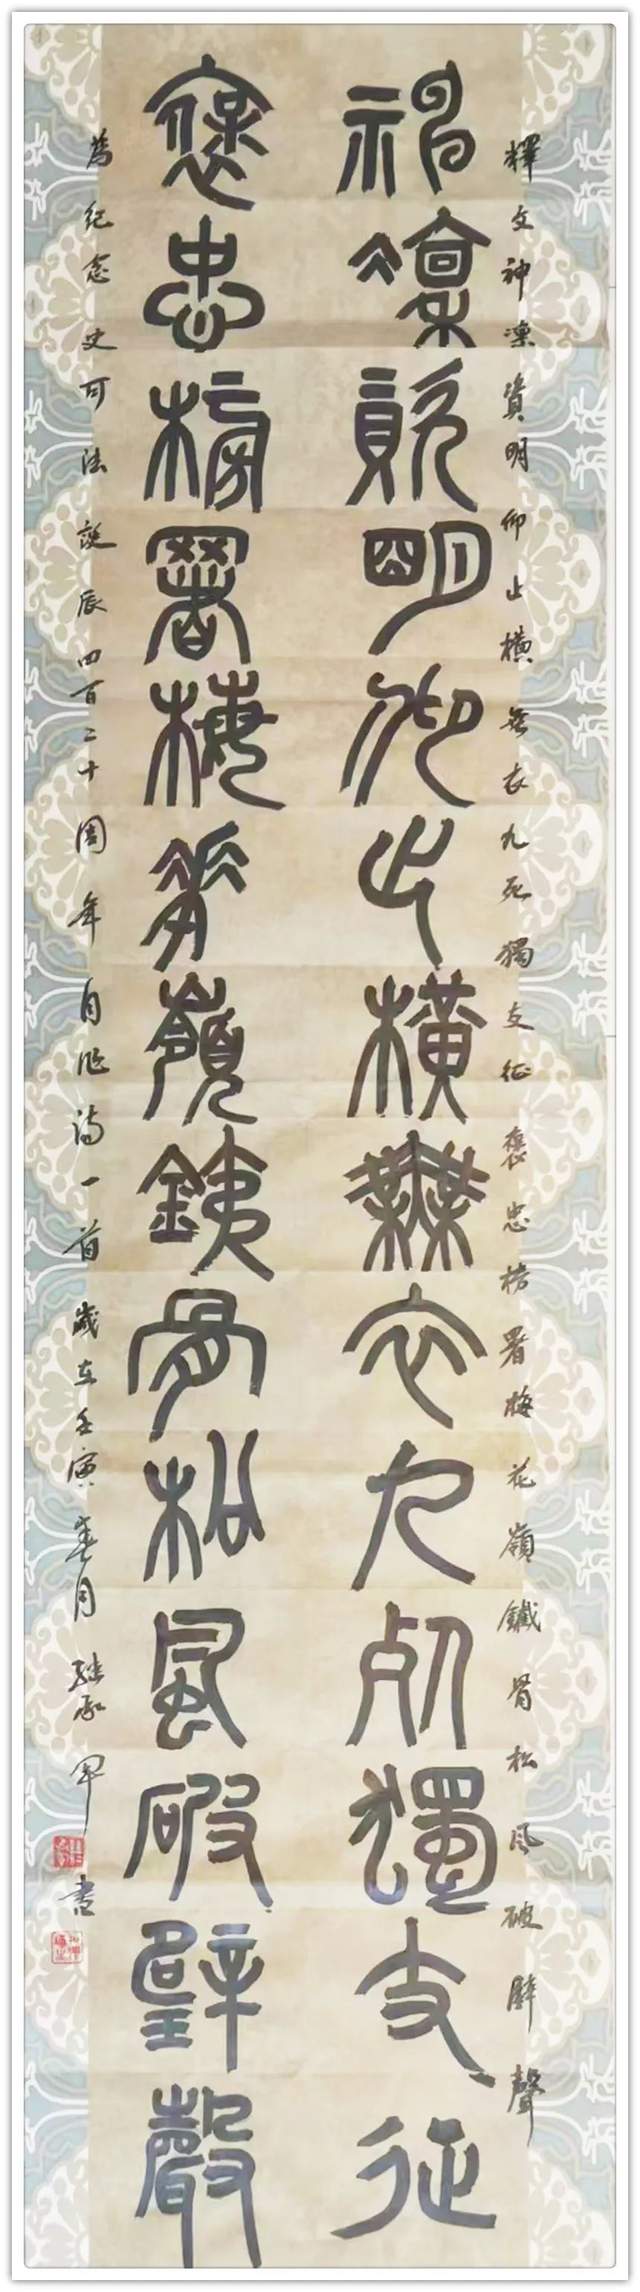 釋文神凜資明仰止橫無衣九死獨支征褒忠榜署梅花嶺鐵骨松风破壁聲
神凜資明仰止橫無衣九死獨支征
褒忠榜署梅華嶺鐵骨松風破壁聲
為紀念史可法誕辰四百二十周年自作诗一首歲在壬寅春月 书